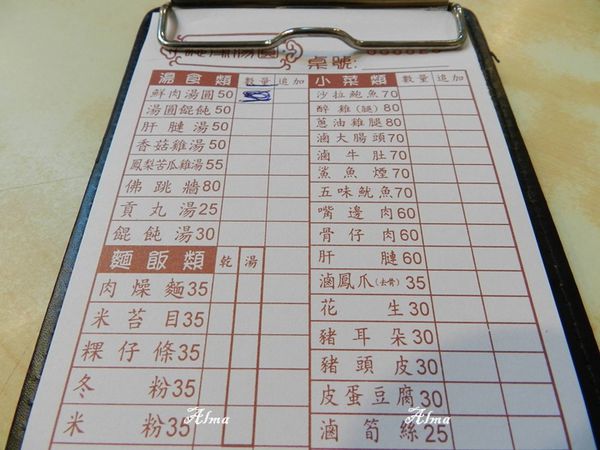 湯圓
桌號:
湯食類 數量 追加
鮮肉湯圓50
湯圓餛飩50
肝腱湯50
香菇雞湯50
鳳梨苦瓜雞湯55
佛跳牆80
貢丸湯25
餛飩湯30
麵飯類 乾 湯
肉燥麵35
米苔目35
粿仔條35
冬粉35
米粉35
小菜類 數量 追加
沙拉鮑魚70
醉雞(腿)80
蔥油雞腿80
滷大腸頭70
滷牛肚70
鯊魚煙70
五味魷魚70
嘴邊肉60
骨仔肉60
肝腱60
滷鳳爪(去骨)35
花生30
豬耳朵30
豬頭皮30
皮蛋豆腐30
滷筍絲25
Alma
Alma